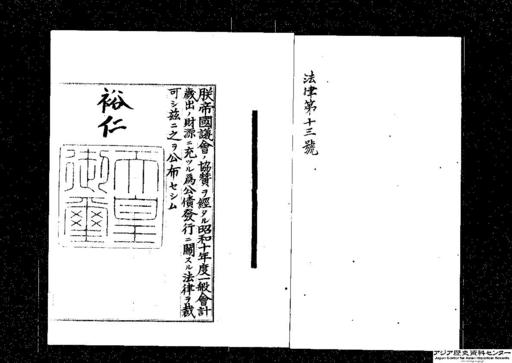 法律第十三號
朕帝國議會ノ協賛ヲ經タル昭和十年度一般會計
歲出ノ財源ニ充ツル爲公債發行ニ關スル法律ヲ裁
可シ茲ニ之ヲ公布セシム
裕仁
天皇
御璽
アジア歴史資料センター
Japan Center for Asian Historical Records